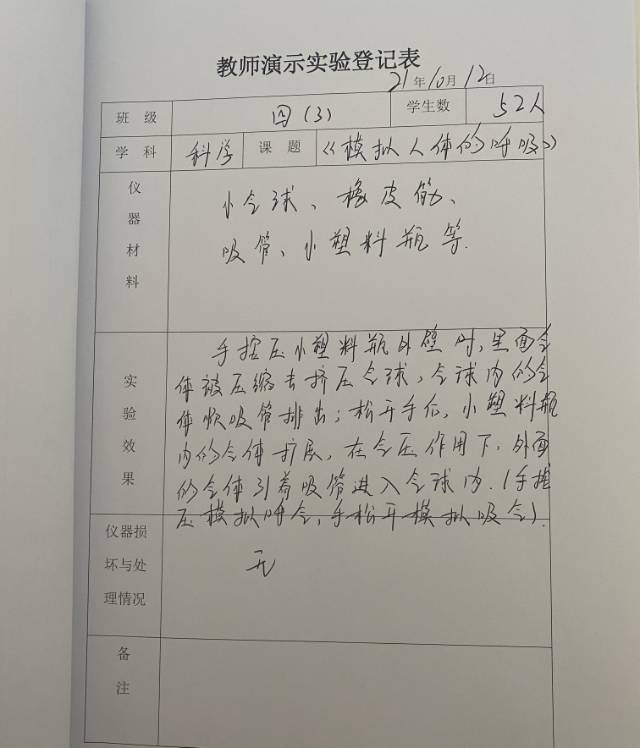 教师演示实验登记表
21年10月12日
班 级 四(3) 学生数 52人
学 科 科学 课 题 《模拟人体的呼吸》
仪器材料
小气球、橡皮筋、
吸管、小塑料瓶等.
实验效果
手控压小塑料瓶外壁时,里面气
体被压缩去挤压气球,气球内的气
体从吸管排出;松开手后,小塑料瓶
内的气体扩展,在气压作用下,外面
的气体引着吸管进入气球内.(手控
压模拟呼气,手松开模拟吸气).
仪器损
坏与处 无
理情况
备注